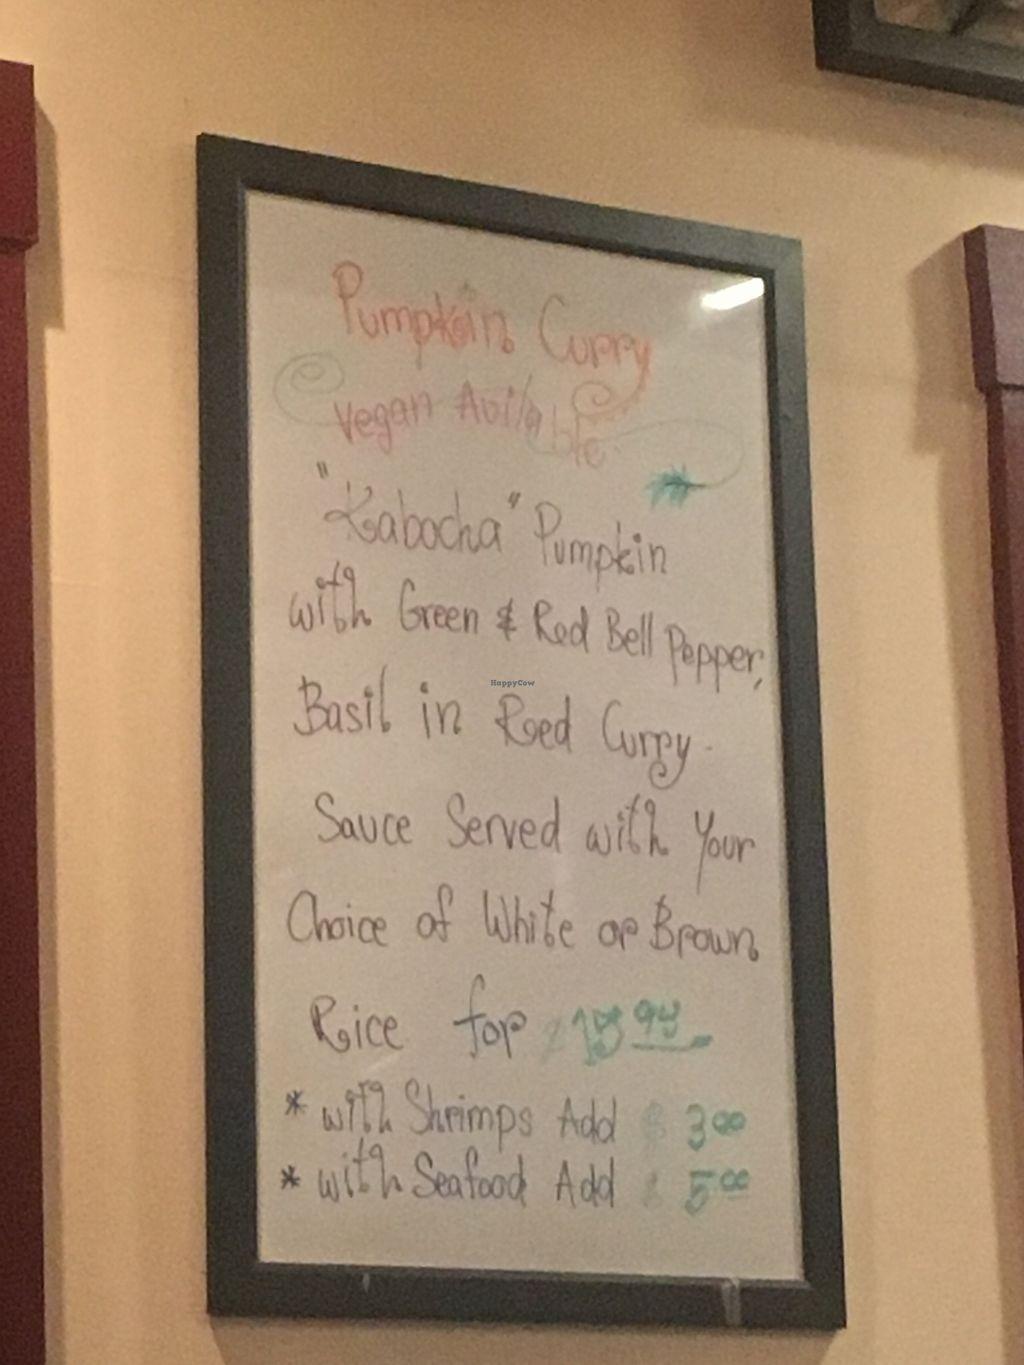 Pumpkin Curry
Vegan Avilable
"Kabocha" Pumpkin
with Green & Red Bell Pepper,
Basil in Red Curry.
HappyCow
Sauce Served with Your
Choice of White or Brown
Rice for
* with Shrimps Add $ 3.00
* with Seafood Add $ 5.00